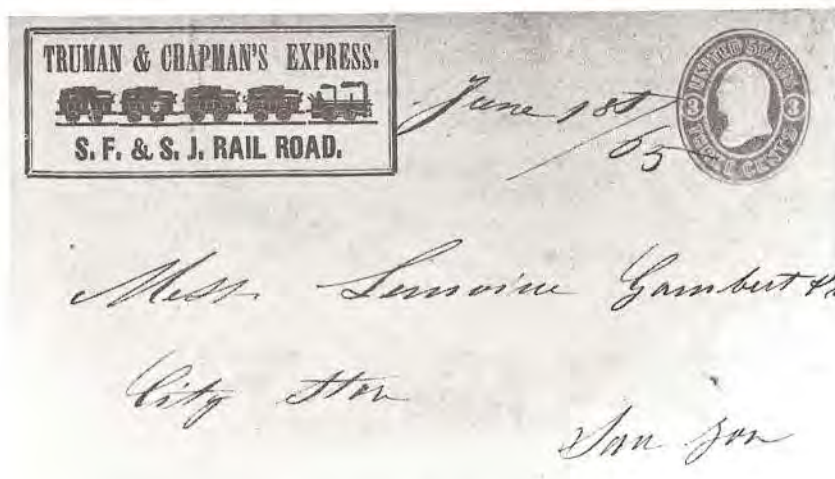 TRUMAN & CHAPMAN'S EXPRESS.
S. F. & S. J. RAIL ROAD.
June 1st
65
UNITED STATES
3 3
THREE CENTS
Mess. Lemoine Gambert &
City Stor
San Jon